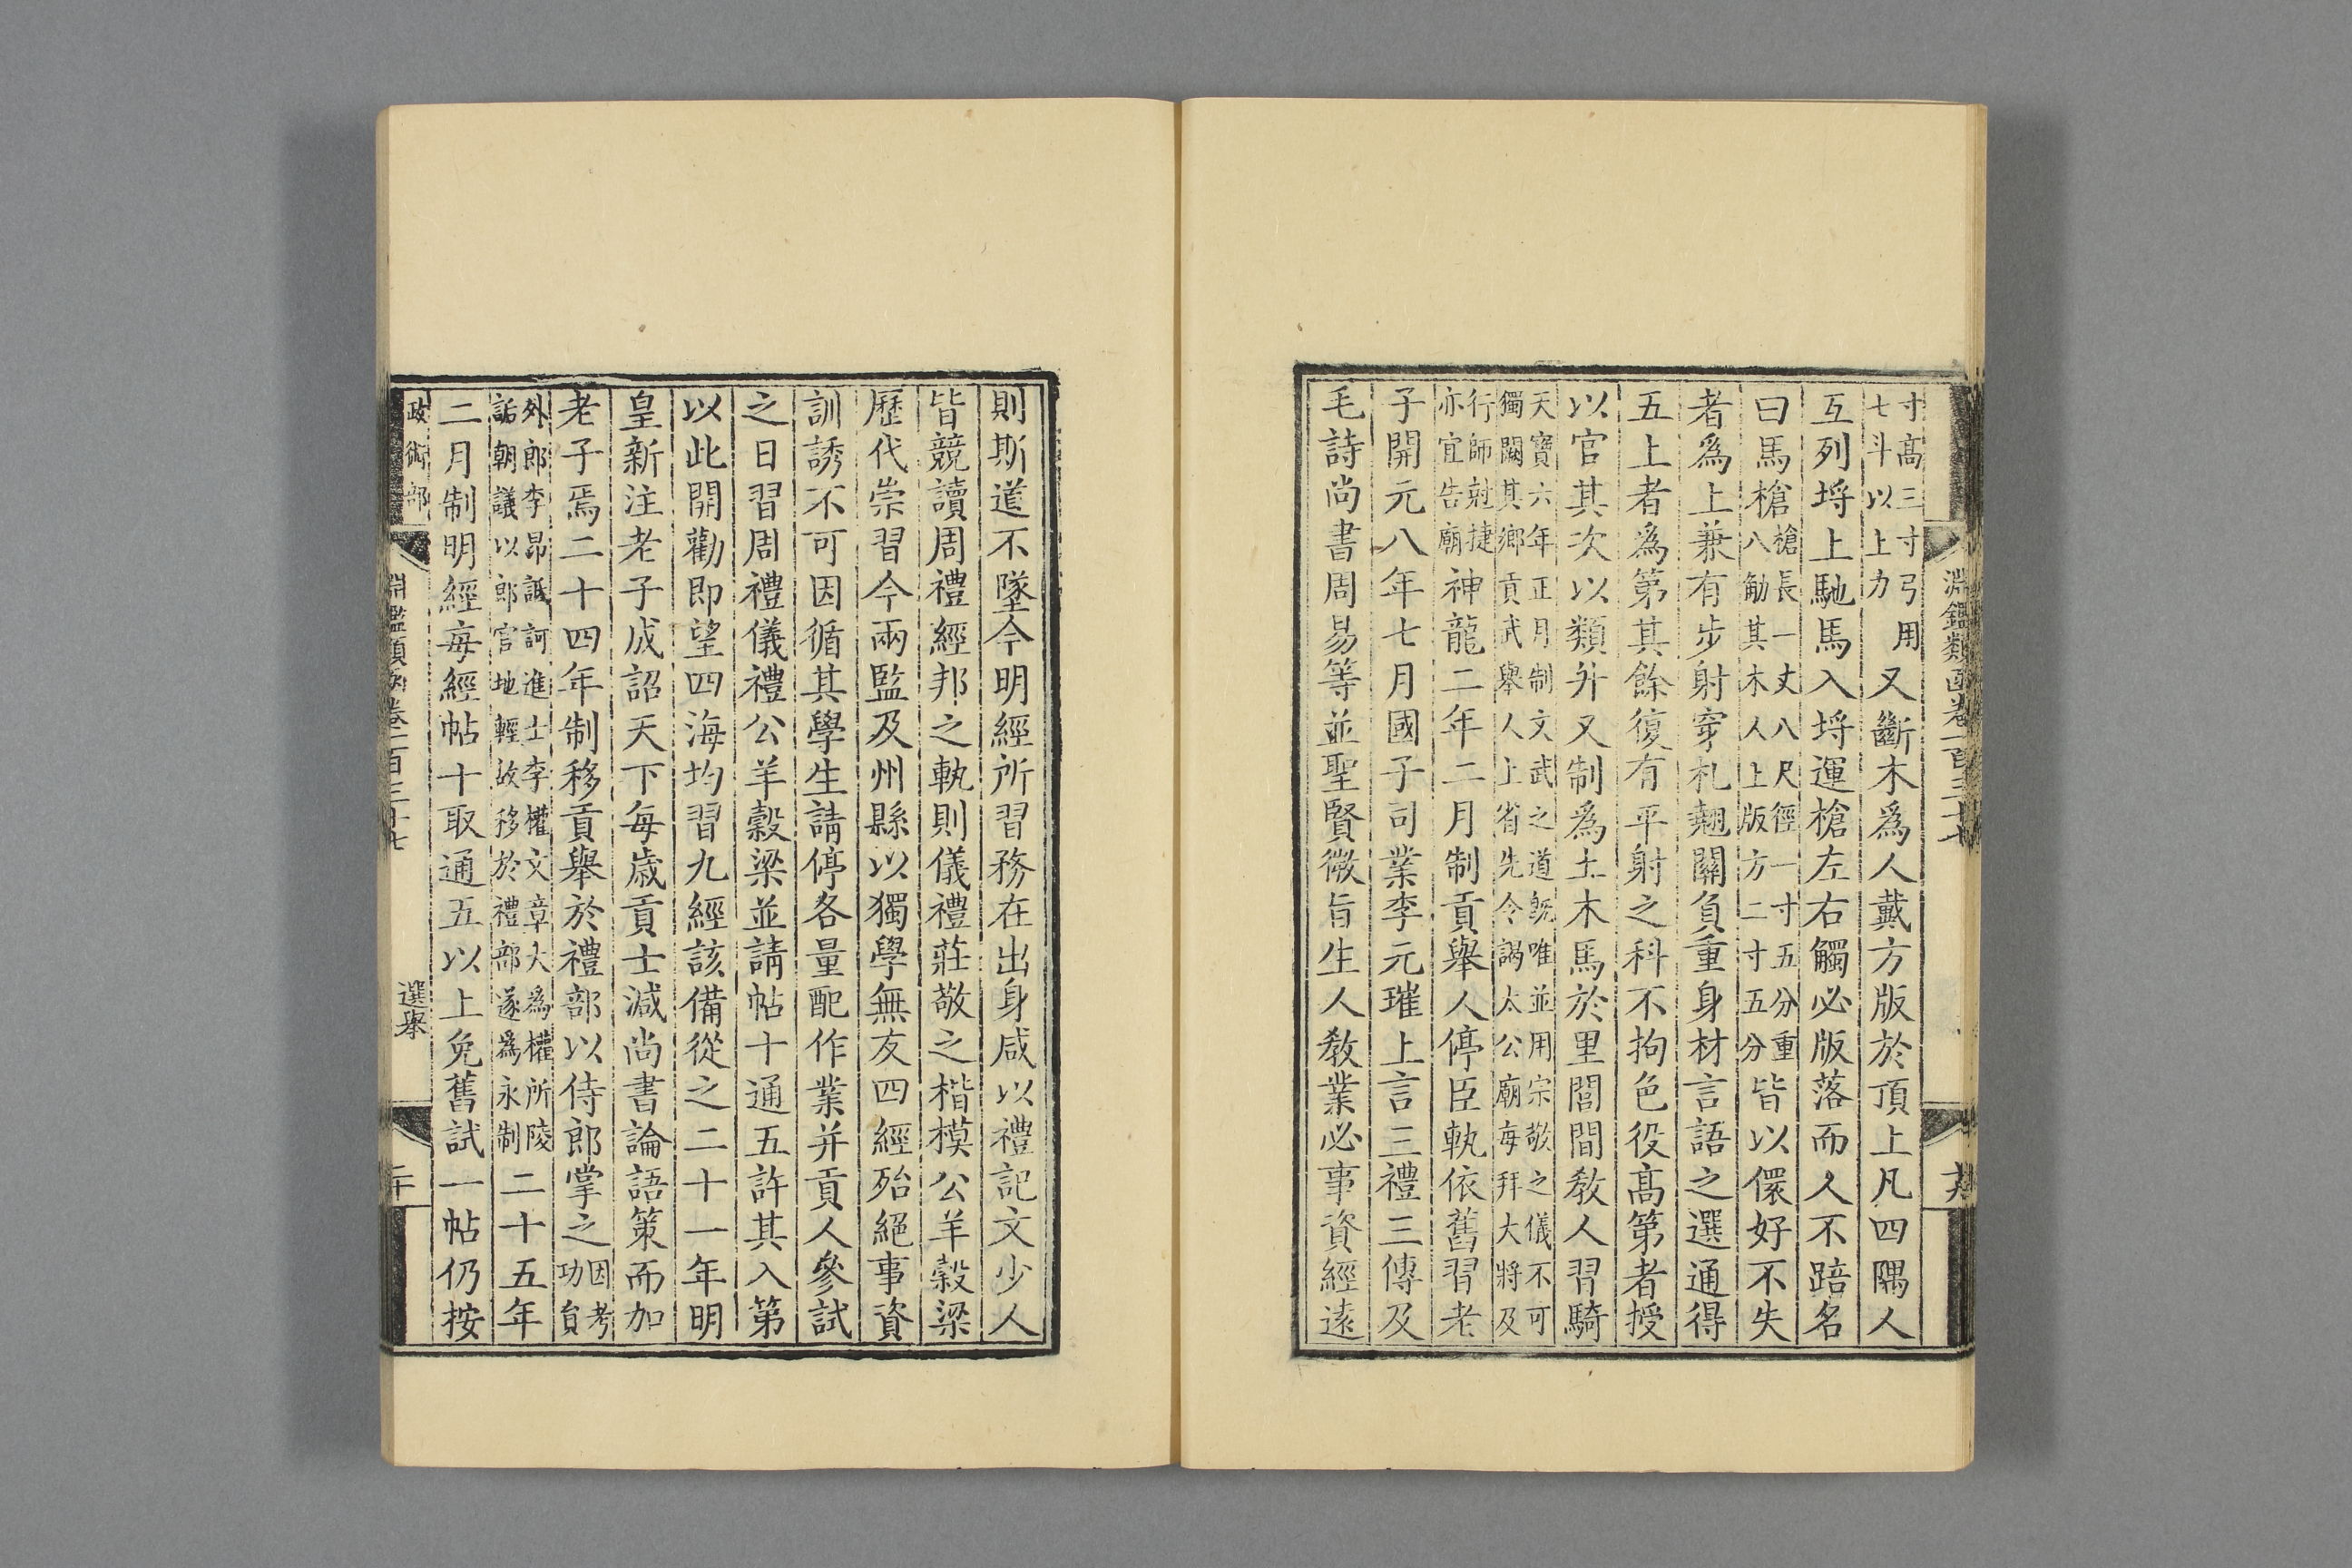 寸高三寸弓用
七斗以上力
又斷木爲人戴方版於頂上凡四隅人
互列埒上馳馬入埒運槍左右觸必版落而人不踣名
曰馬槍
槍長一丈八尺徑一寸五分重
八觔其木人上版方二寸五分
皆以儇好不失
者爲上兼有步射穿札翹關負重身材言語之選通得
五上者爲第其餘復有平射之科不拘色役高第者授
以官其次以類升又制爲土木馬於里閭間教人習騎
天寶六年正月制文武之道旣唯並用宗敬之儀不可
獨闕其鄉貢武舉人上省先令謁太公廟每拜大將及
行師尅捷
亦宜告廟
神龍二年二月制貢舉人停臣軌依舊習老
子開元八年七月國子司業李元璀上言三禮三傳及
毛詩尚書周易等並聖賢微旨生人教業必事資經遠
淵鑑類函卷一百三十七
則斯道不墜今明經所習務在出身咸以禮記文少人
皆競讀周禮經邦之軌則儀禮莊敬之楷模公羊穀梁
歷代崇習今兩監及州縣以獨學無友四經殆絕事資
訓誘不可因循其學生請停各量配作業并貢人參試
之日習周禮儀禮公羊穀梁並請帖十通五許其入第
以此開勸即望四海均習九經該備從之二十一年明
皇新注老子成詔天下每歲貢士減尚書論語策而加
老子焉二十四年制移貢舉於禮部以侍郎掌之
因考
功員
外郎李昂詆訶進士李權文章大爲權所陵
詬朝議以郎官地輕故移於禮部遂爲永制
二十五年
二月制明經每經帖十取通五以上免舊試一帖仍按
政術部
淵鑑類函卷一百三十七
選舉
二十